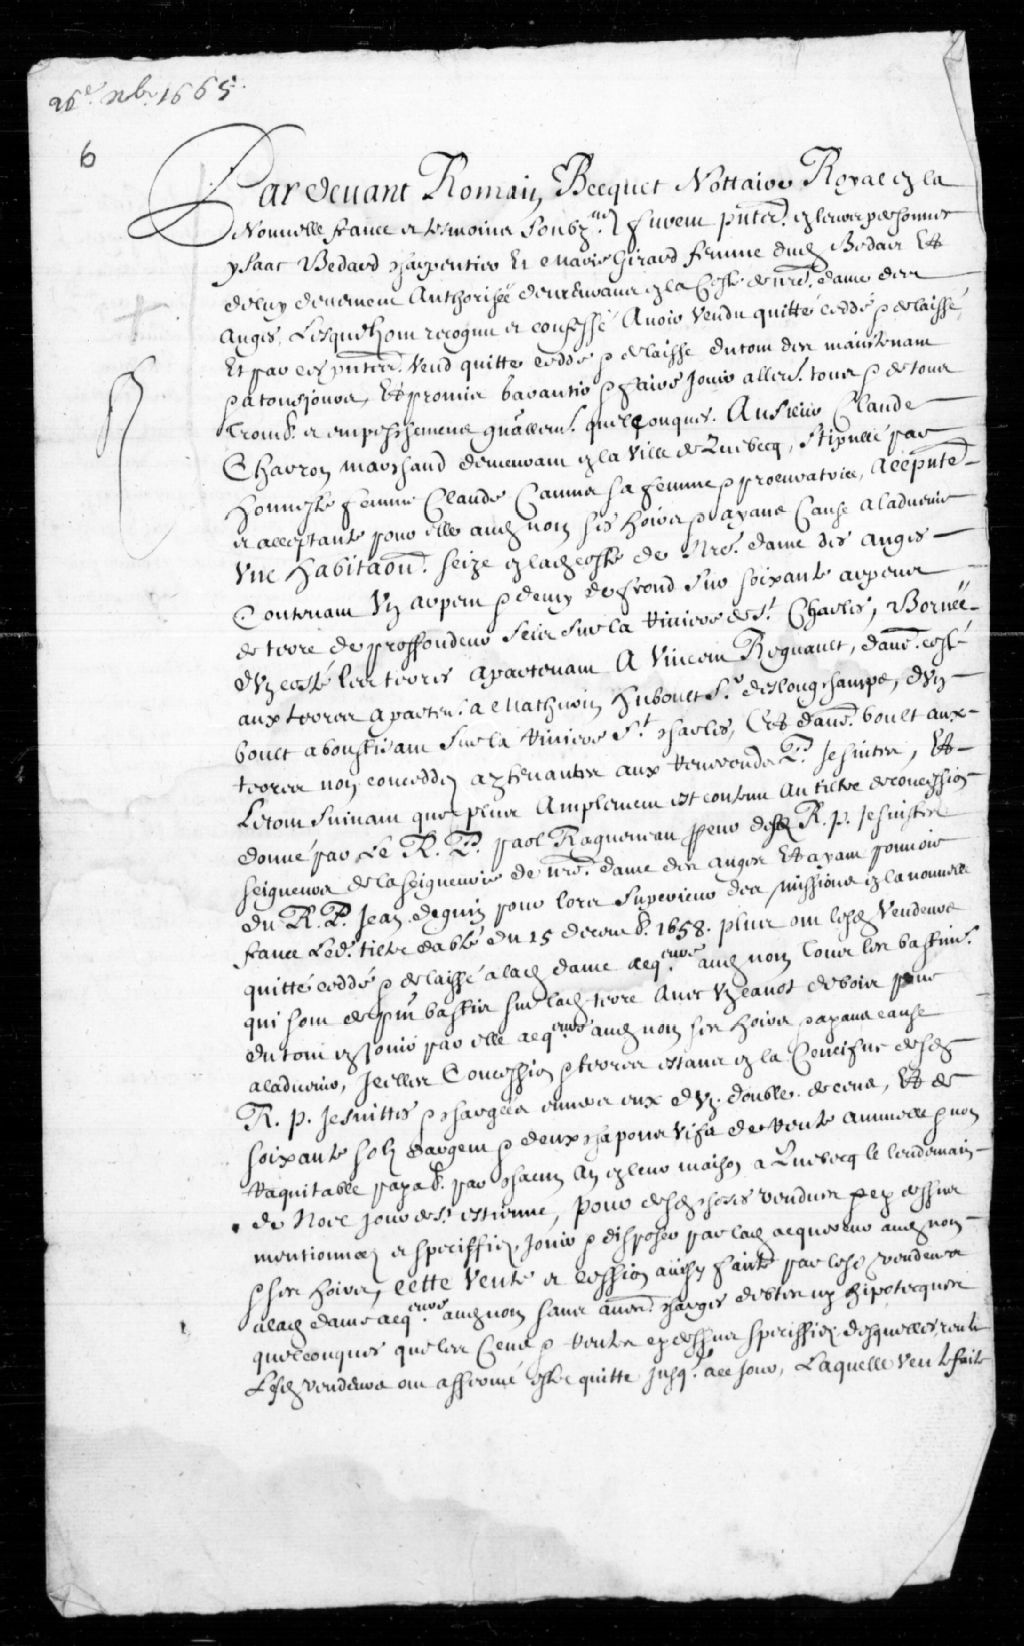 26e. 9br. 1665.
6
Par devant Romain Becquet Nottaire Royal en la
Nouvelle france et tesmoins soubz.nez furent pnter. en leurs personnes
ysaac Bedard charpentier Et Marie Girard femme dud Bedard Et
de luy deuement Authorisée demeurans en la Coste de nre. dame des
Anges, Lesquelz ont recognu et confessé Avoir Vendu quitté ceddé & delaissé,
Et par ces pntes. Vend quitte cedde & delaisse du tout des maintenant
& a tousjours, Et promis garantir & faire Jouir allers. tous & de tous
Troub. et empeschemens quallconq. quelconques. Au sieur Claude
Charron marchand demeurant en la Ville de Quebecq, stipullé par
Honneste femme Claude Camus sa femme & procuratrice, A ce pnte.
et acceptante pour elle aud nom ses hoirs & ayans Cause aladvenir
Vne Habitaon. seize en lad coste de Nre. dame des anges
Contenant Vn arpent & demy de frond sur soixante arpens
de terre de proffondeur seize sur la Riviere de St. Charles, Bornée
d'vn costé les terres apartenant A Vincent Regnault, daure. costé
aux terres aparten. a Mathurin Huboult Sr. deslongchamps, d'vn
boult aboustissant sur la Riviere St. charles, Et daure. boult aux
terres non concedden apartenantes aux Reverends P. Jesuittes, Et
Le tout suivant que plus Amplement est contenu Au tiltre de concession
donné par Le R. P. paol Ragueneau preur desd R. p. Jesuistes
seigneurs de la seigneurie de nre. dame des anges Et ayant pouvoir
du R. P. Jean dequin pour lors superieur des missions en la nouvelle
france Led. tiltre datté du 15 decemb. 1658. plus ont lesd Vendeurs
quitté ceddé & delaissé a lad dame acq.eresse aud nom Tous les bastim.
qui sont de pnt bastis sur lad terre Avec Vn canot de bois pour
du tout en Jouir par elle acq.eresse aud nom ses hoirs & ayans cause
aladvenir, Icelles Concession & terres estans en la Concisive desd
R. p. Jesuittes & chargées envers eux d'vn double de cens, Et de
soixante solz dargent & deux chapons vifs de Rente annuelle & non
Raquitable payab. par chacun An en leur maison a Quebecq le lendemain
de Noel jour de St. estienne, pour desd choses vendues & cy dessus
mentionnées et speciffiez, Jouir & disposer par lad acquereur aud nom
& ses hoirs, Cette Vente et cession ainsy faicte par lesd vendeurs
a lad dame acq.eresse aud nom sans aucun. charges debtes ny hipotecques
quelconques que les Cens & Rentes cy dessus speciffiez desquelles rente
Lesd vendeurs ont affermé estre quitte jusq. a ce jour, Laquelle Vente faite